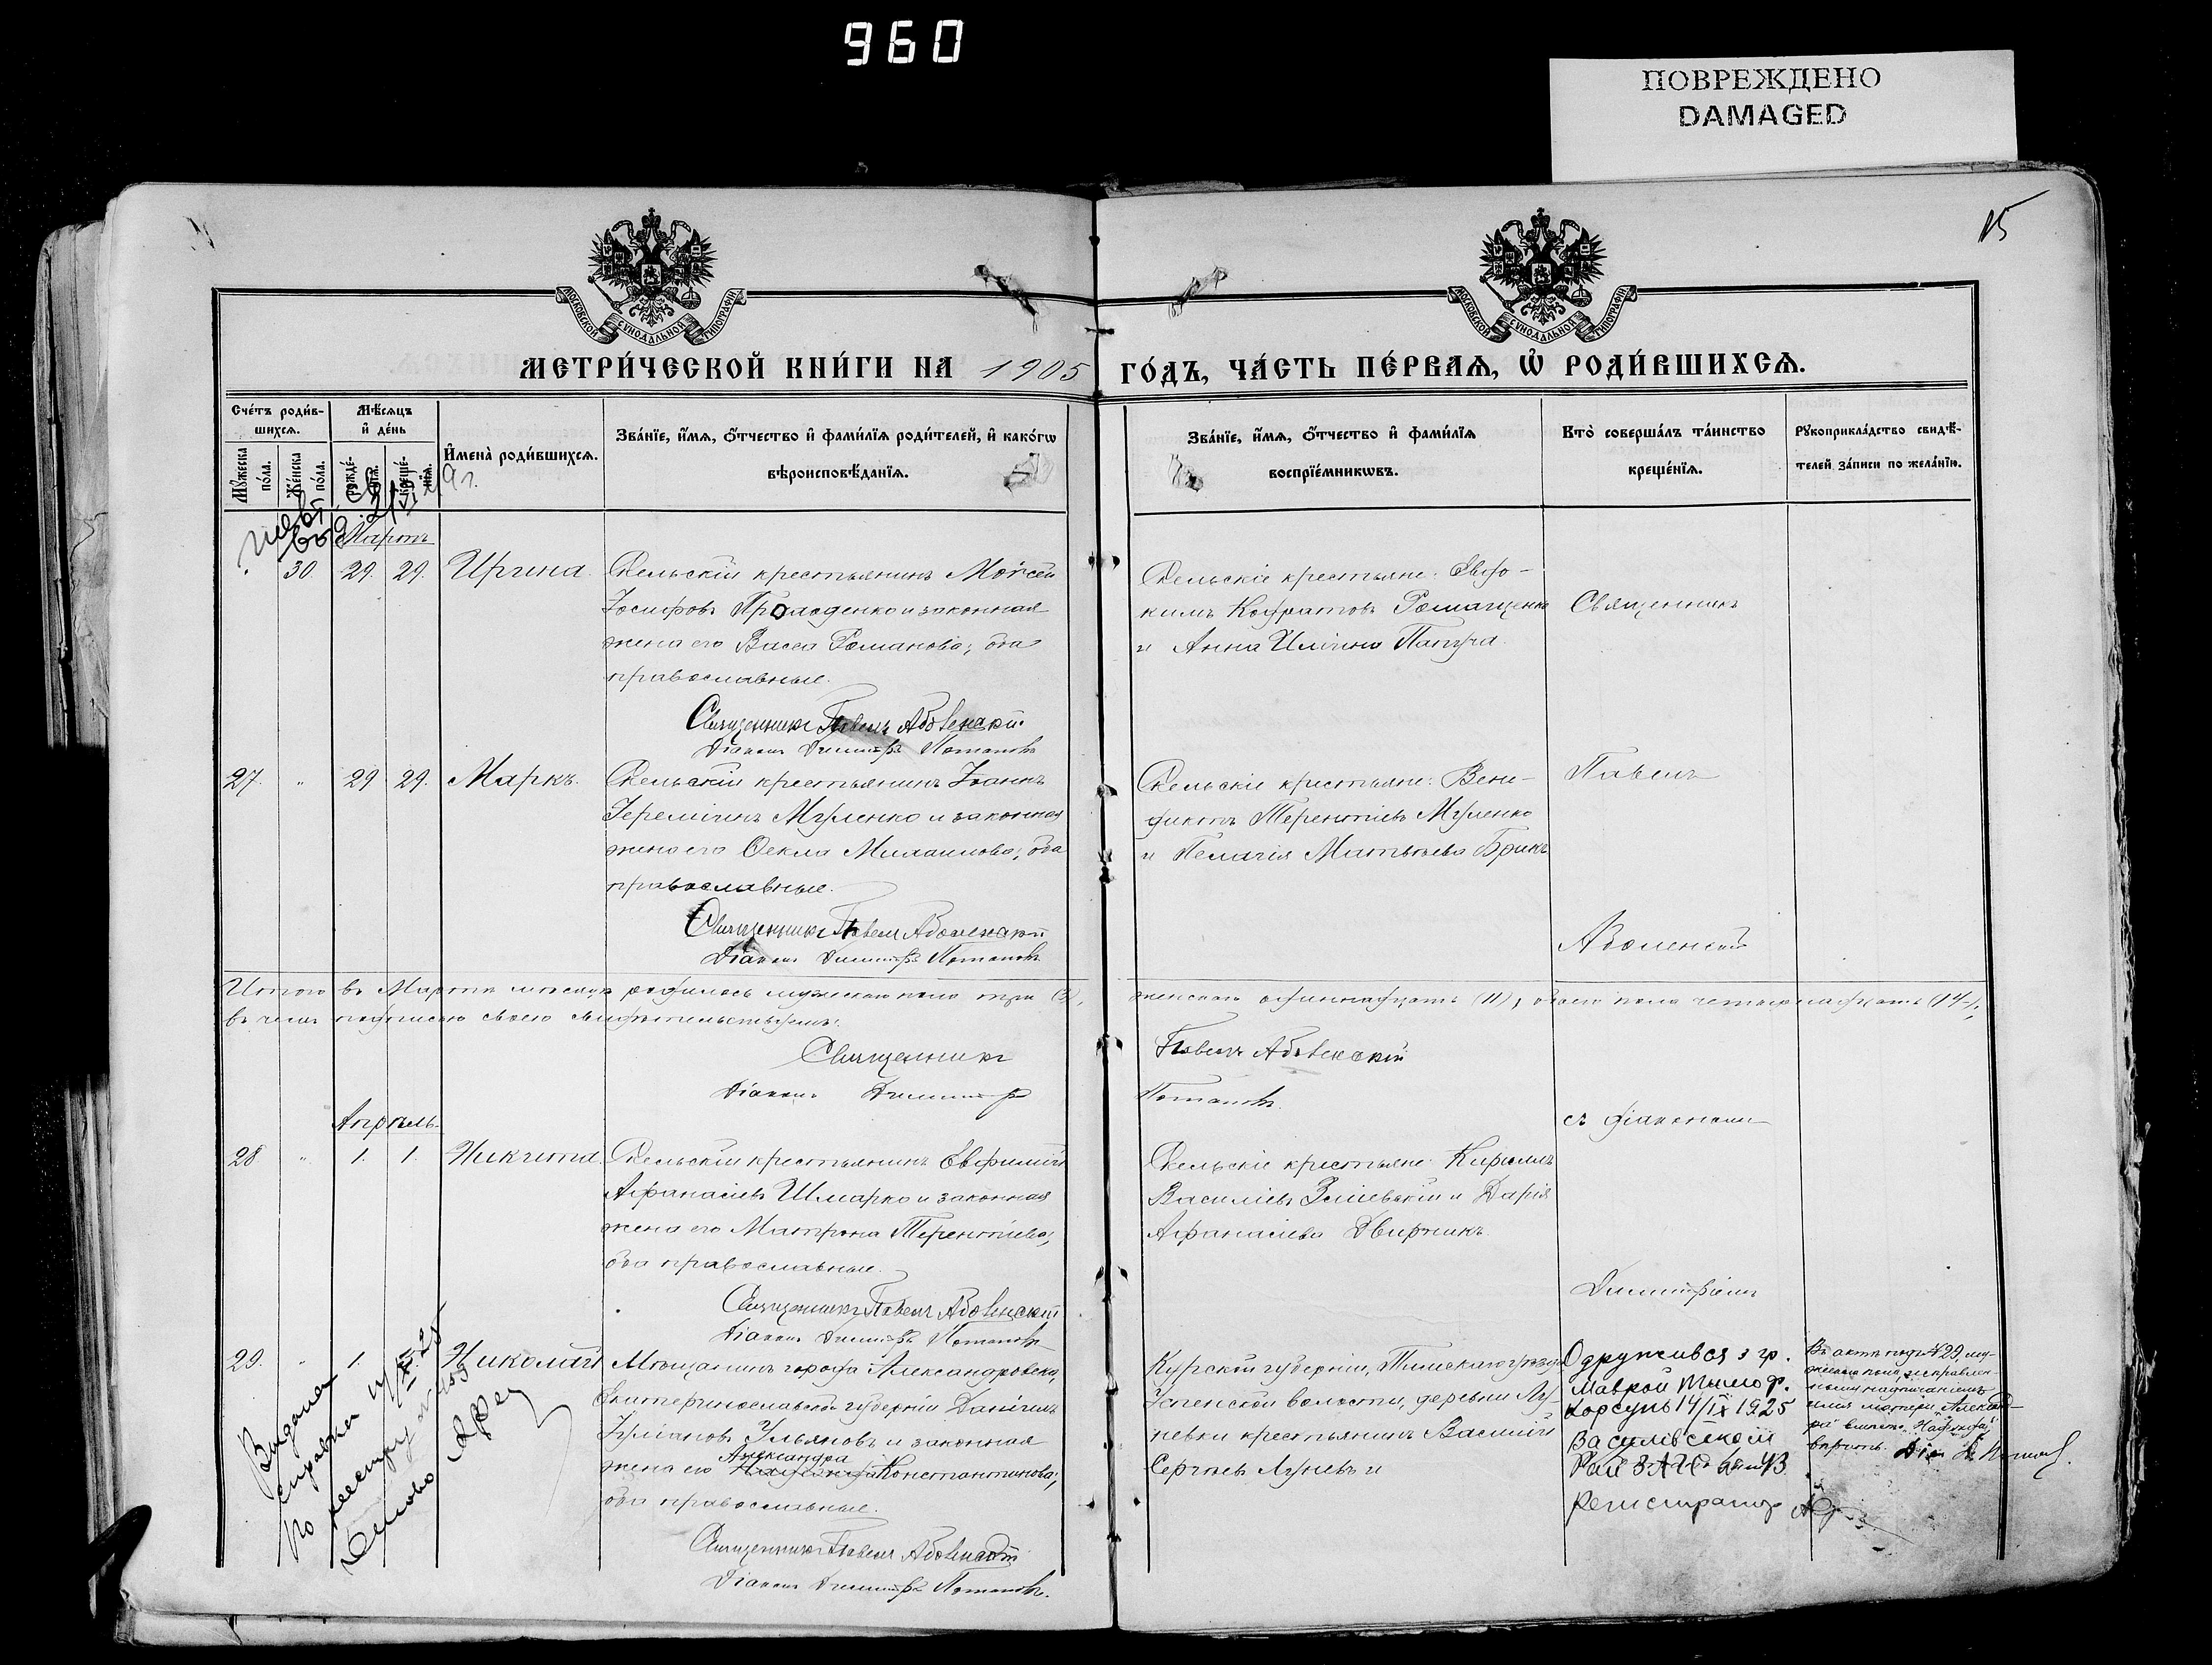 960
ПОВРЕЖДЕНО
DAMAGED
15
МОСКОВСКОЙ СѴНОДАЛЬНОЙ ТИПОГРАФІИ
МОСКОВСКОЙ СѴНОДАЛЬНОЙ ТИПОГРАФІИ
МЕТРИ́ЧЕСКОЙ КНИ́ГИ НА 1905 ГО́ДЪ, ЧА́СТЬ ПЕ́РВАѦ, Ѡ҆ РОДИ́ВШИХСѦ.
Сче́тъ роди́в-
шихсѧ.
Мꙋжеска по́ла.
Же́нска по́ла.
Мѣ́сѧцъ
и҆ де́нь
рожде́-
нїѧ.
креще́-
нїѧ.
И҆мена̀ роди́вшихсѧ.
Зва́нїе, и҆́мѧ, ѻ҆́тчество и҆ фами́лїѧ роди́телей, и҆ како́гѡ
вѣроисповѣ́данїѧ.
Зва́нїе, и҆́мѧ, ѻ҆́тчество и҆ фами́лїѧ
воспрїе́мникѡвъ.
Кто̀ соверша́лъ та́инство
креще́нїѧ.
Рꙋкоприкла́дство свидѣ́-
телей за́писи по жела́нїю.
Мартъ
30. 29. 29. Ирина.
Бельскій крестьянинъ Моисей
Іосифовъ и законная
жена его Васса Романова; оба
православные.
Священникъ Павелъ Аболенскій
Діаконъ Димитрій Потаповъ
Бельскіе крестьяне: Евдо-
кимъ Кодратовъ Ромащенко
и Анна Илiина Папуча.
Священникъ
27. „ 29 29. Маркъ.
Бельскій крестьянинъ Іоаннъ
Іереміинъ Муленко и законная
жена его Ѳекла Михаилова; оба
православные.
Священникъ Павелъ Аболенскій
Діаконъ Димитрій Потаповъ
Бельскіе крестьяне: Вени-
диктъ Терентіевъ Муленко
и Пелагія Матвѣева Брикъ
Павелъ
Аболенскій
Итого въ Мартѣ мѣсяцѣ родилось мужескаго пола три (3), женскаго одиннадцать (11), обоего пола четырнадцать (14);
въ чемъ подписью своею свидѣтельствуемъ:
Священникъ Павелъ Аболенскій
Діаконъ Димитрій Потаповъ.
съ діакономъ
Апрѣль
28 „ 1. 1. Никита.
Бельскій крестьянинъ Евфимій
Афанасіевъ Шмарко и законная
жена его Матрона Терентіева;
оба православные.
Священникъ Павелъ Аболенскій
Діаконъ Димитрій Потаповъ
Бельскіе крестьяне: Кириллъ
Василіевъ и Дарія
Афанасіева Двирникъ.
Димитріемъ
29. „ 1. Николай
Мѣщанинъ города Александровска,
Екатеринославской губерніи Даніилъ
Іуліановъ Ульяновъ и законная
Александра
жена его Константинова;
оба православные.
Священникъ Павелъ Аболенскій
Діаконъ Димитрій Потаповъ.
Курской губерніи, Тимскаго уѣзда
Успенской волости, деревни Лу-
невки крестьянинъ Василій
Сергѣевъ Луневъ и
Одружився з гр.
Маврой Тимоф.
Корсунь 14/IX 1925
Василівській
Рай ЗАГС
Регистратор
Въ актѣ подъ №29, му-
жескаго пола, исправлен-
ному надписаніемъ
имя матери „Александ-
ра" вмѣсто
вѣрить.
Видана
справка
по реестру